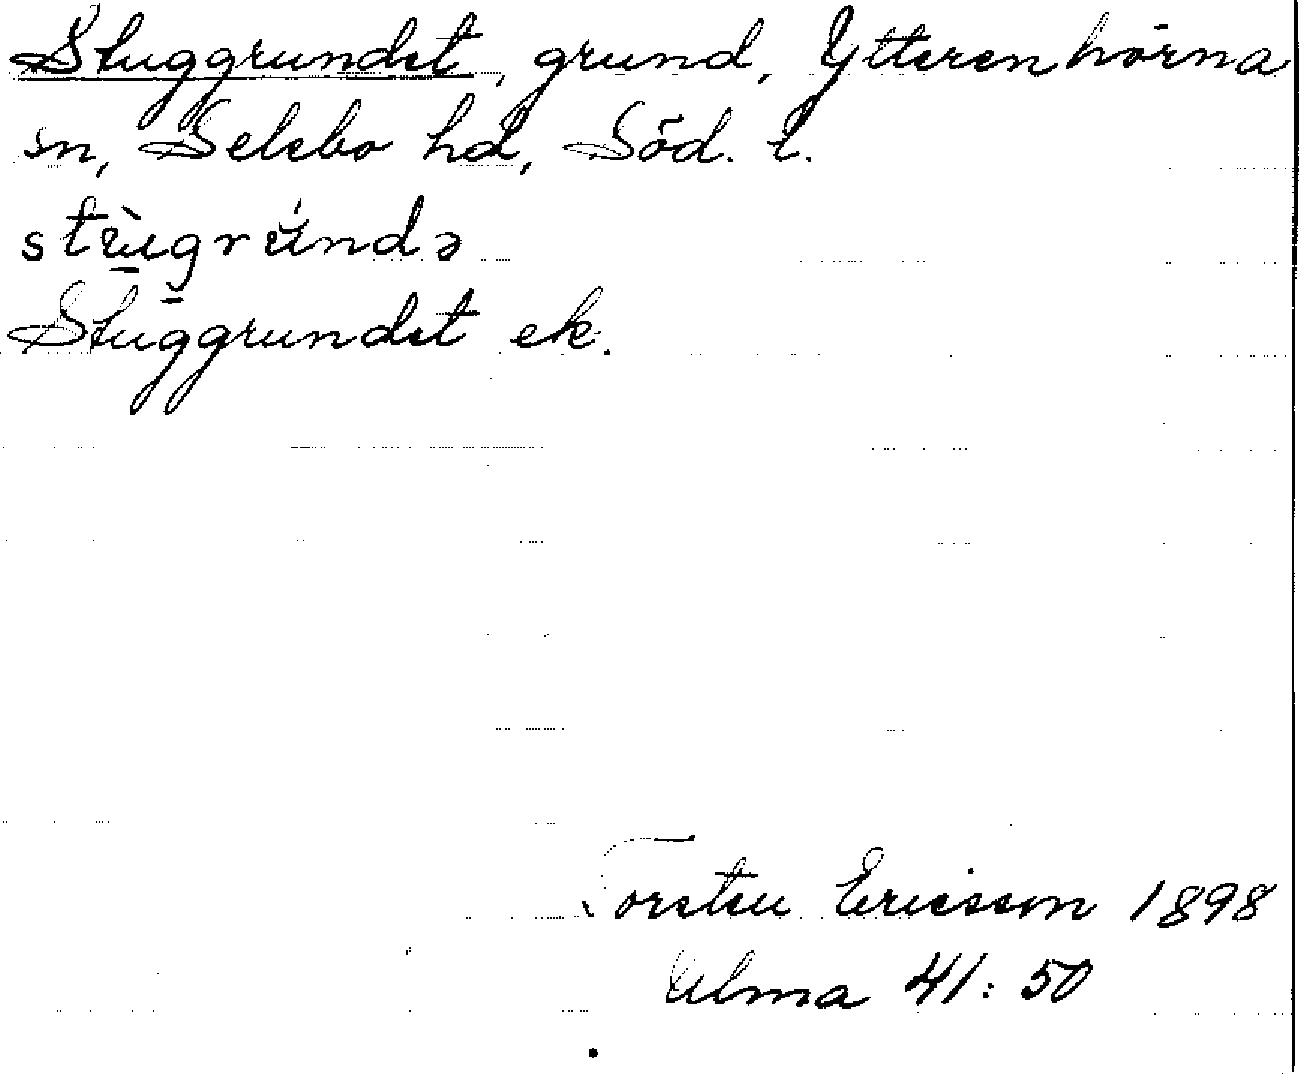 Stuggrundet, grund, Ytterenhörna
sn, Selebo hd, Söd. l.
stu̠̇̀gru̇́ndə
Stuggrundet ek.
Torsten Ericsson 1898
Ulma 41:50